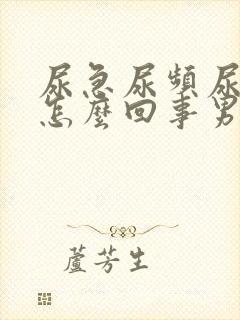 尿急尿頻尿
怎麼回事男
蘆芳生